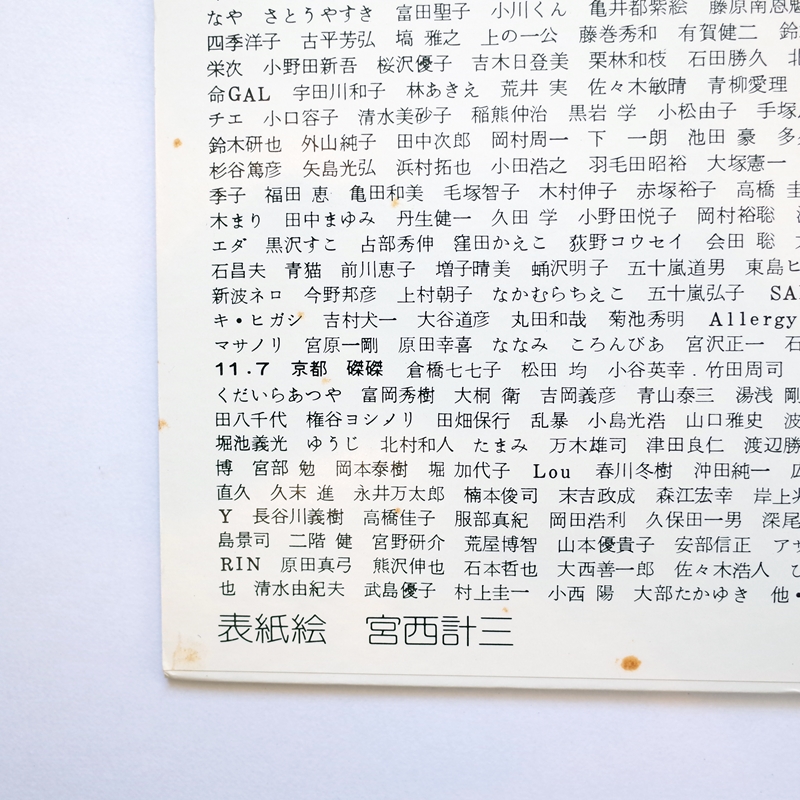 なや さとうやすき 富田聖子 小川くん 亀井都紫絵 藤原南恩
四季洋子 古平芳弘 塙 雅之 上の一公 藤巻秀和 有賀健二
栄次 小野田新吾 桜沢優子 吉木日登美 栗林和枝 石田勝久
命GAL 宇田川和子 林あきえ 荒井 実 佐々木敏晴 青柳愛理
チエ 小口容子 清水美砂子 稲熊仲治 黒岩 学 小松由子 手塚
鈴木研也 外山純子 田中次郎 岡村周一 下 一朗 池田 豪 多
杉谷篤彦 矢島光弘 浜村拓也 小田浩之 羽毛田昭裕 大塚憲一
季子 福田 恵 亀田和美 毛塚智子 木村伸子 赤塚裕子 高橋 圭
木まり 田中まゆみ 丹生健一 久田 学 小野田悦子 岡村裕聡
エダ 黒沢すこ 占部秀伸 窪田かえこ 荻野コウセイ 会田 聡
石昌夫 青猫 前川恵子 増子晴美 蛹沢明子 五十嵐道男 東島ヒ
新波ネロ 今野邦彦 上村朝子 なかむらちえこ 五十嵐弘子 SA
キ・ヒガシ 吉村犬一 大谷道彦 丸田和哉 菊池秀明 Allergy
マサノリ 宮原一剛 原田幸喜 ななみ ころんびあ 宮沢正一 石
11.7 京都 磔磔 倉橋七七子 松田 均 小谷英幸 . 竹田周司
くだいらあつや 富岡秀樹 大桐 衛 吉岡義彦 青山泰三 湯浅 剛
田八千代 権谷ヨシノリ 田畑保行 乱暴 小島光浩 山口雅史 波
堀池義光 ゆうじ 北村和人 たまみ 万木雄司 津田良仁 渡辺勝
博 宮部 勉 岡本泰樹 堀 加代子 Lou 春川冬樹 沖田純一 広
直久 久末 進 永井万太郎 楠本俊司 末吉政成 森江宏幸 岸上
Y 長谷川義樹 高橋佳子 服部真紀 岡田浩利 久保田一男 深尾
島景司 二階 健 宮野研介 荒屋博智 山本優貴子 安部信正 アサ
RIN 原田真弓 熊沢伸也 石本哲也 大西善一郎 佐々木浩人 ひ
也 清水由紀夫 武島優子 村上圭一 小西 陽 大部たかゆき 他・
表紙絵 宮西計三